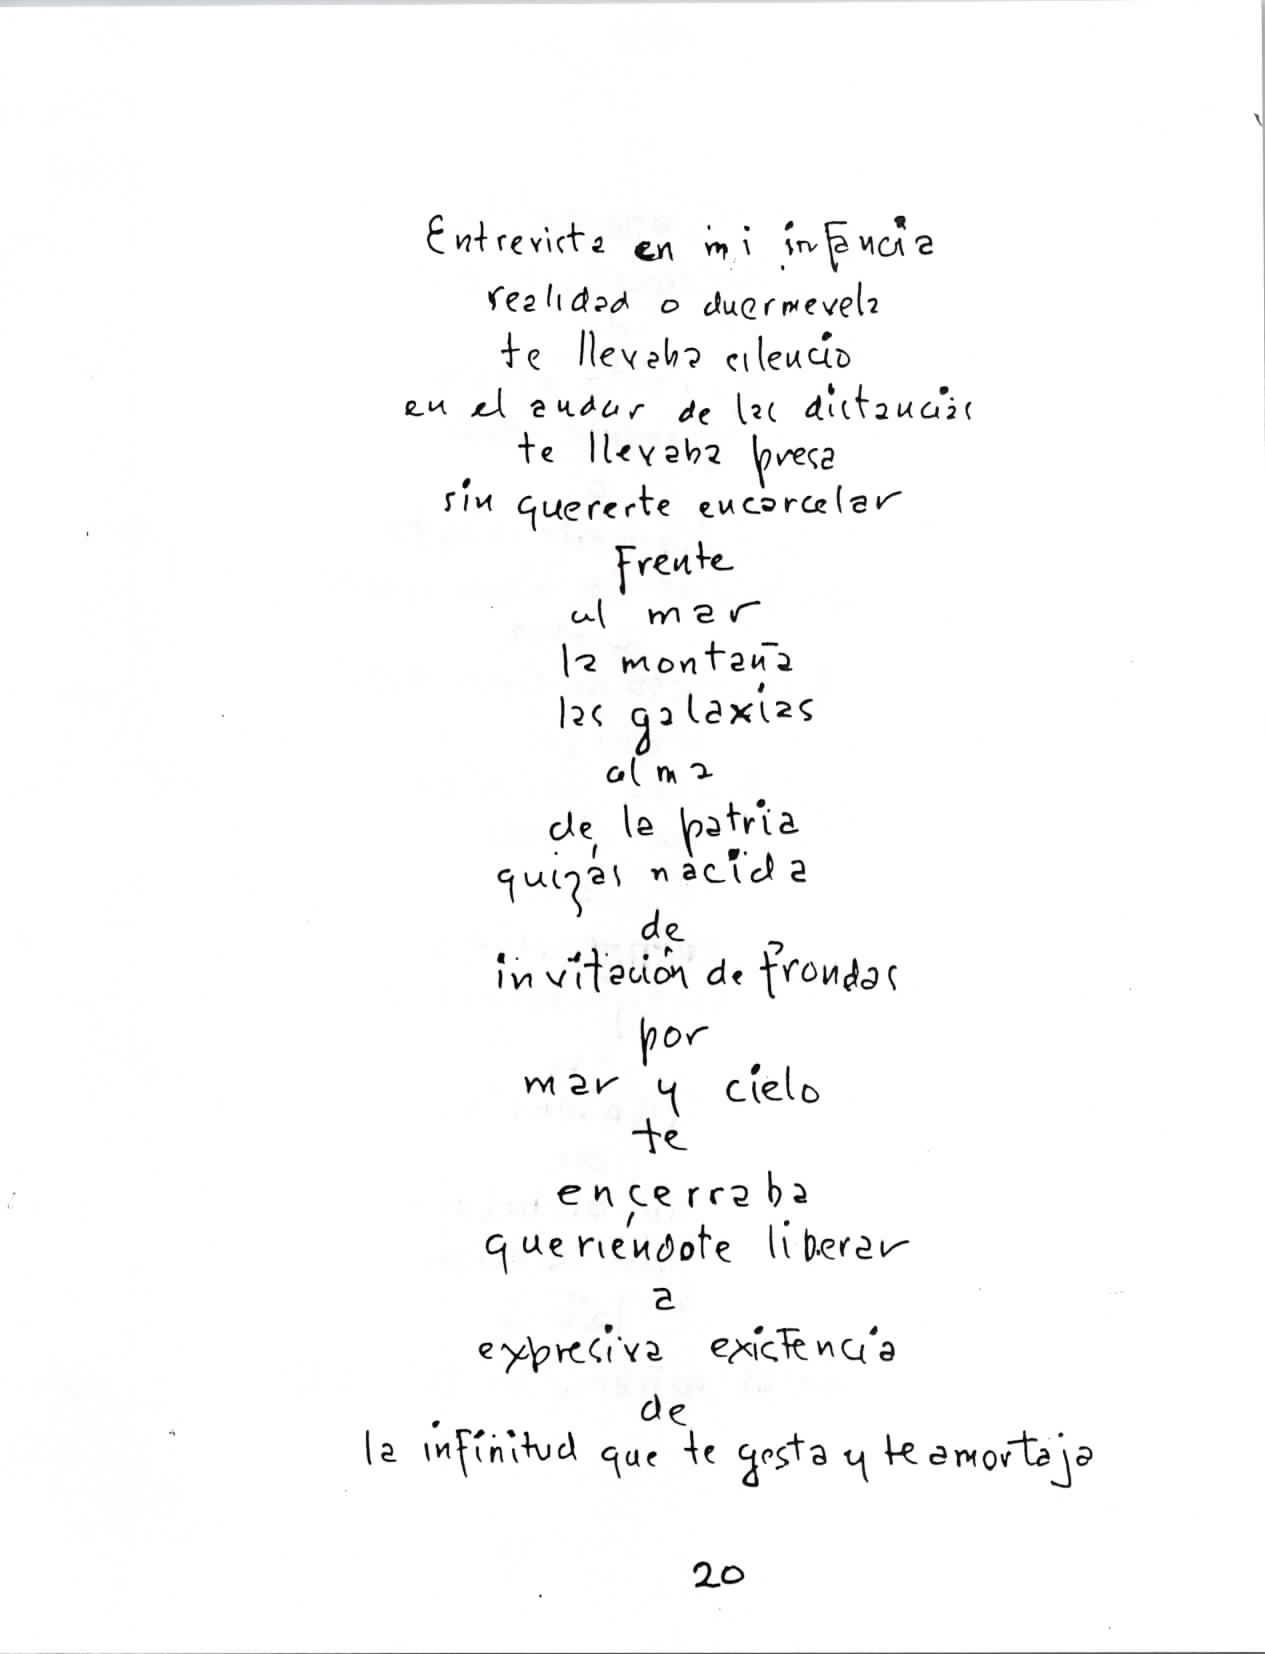 Entrevista en mi infancia
realidad o duermevela
te llevaba silencio
en el andar de las distancias
te llevaba presa
sin quererte encarcelar
Frente
al mar
la montaña
las galaxias
alma
de la patria
quizás nacida
de
invitación de frondas
por
mar y cielo
te
encerraba
queriéndote liberar
a
expresiva existencia
de
la infinitud que te gesta y te amortaja
20